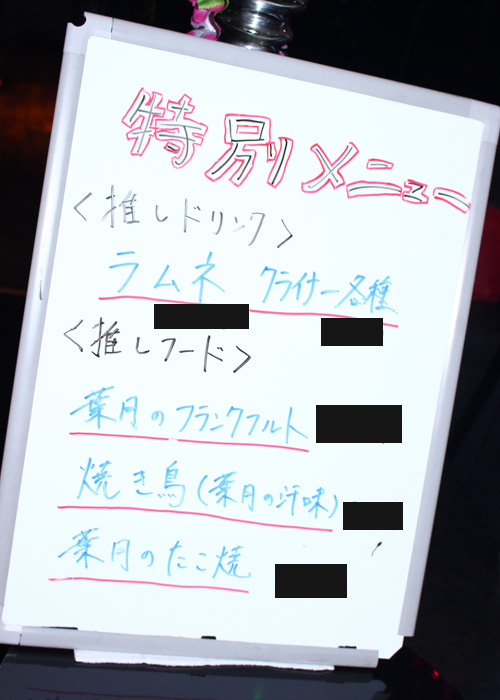 特別メニュー
<推しドリンク>
ラムネ クライナー各種
<推しフード>
葉月のフランクフルト
焼き鳥(葉月の汗味)
葉月のたこ焼